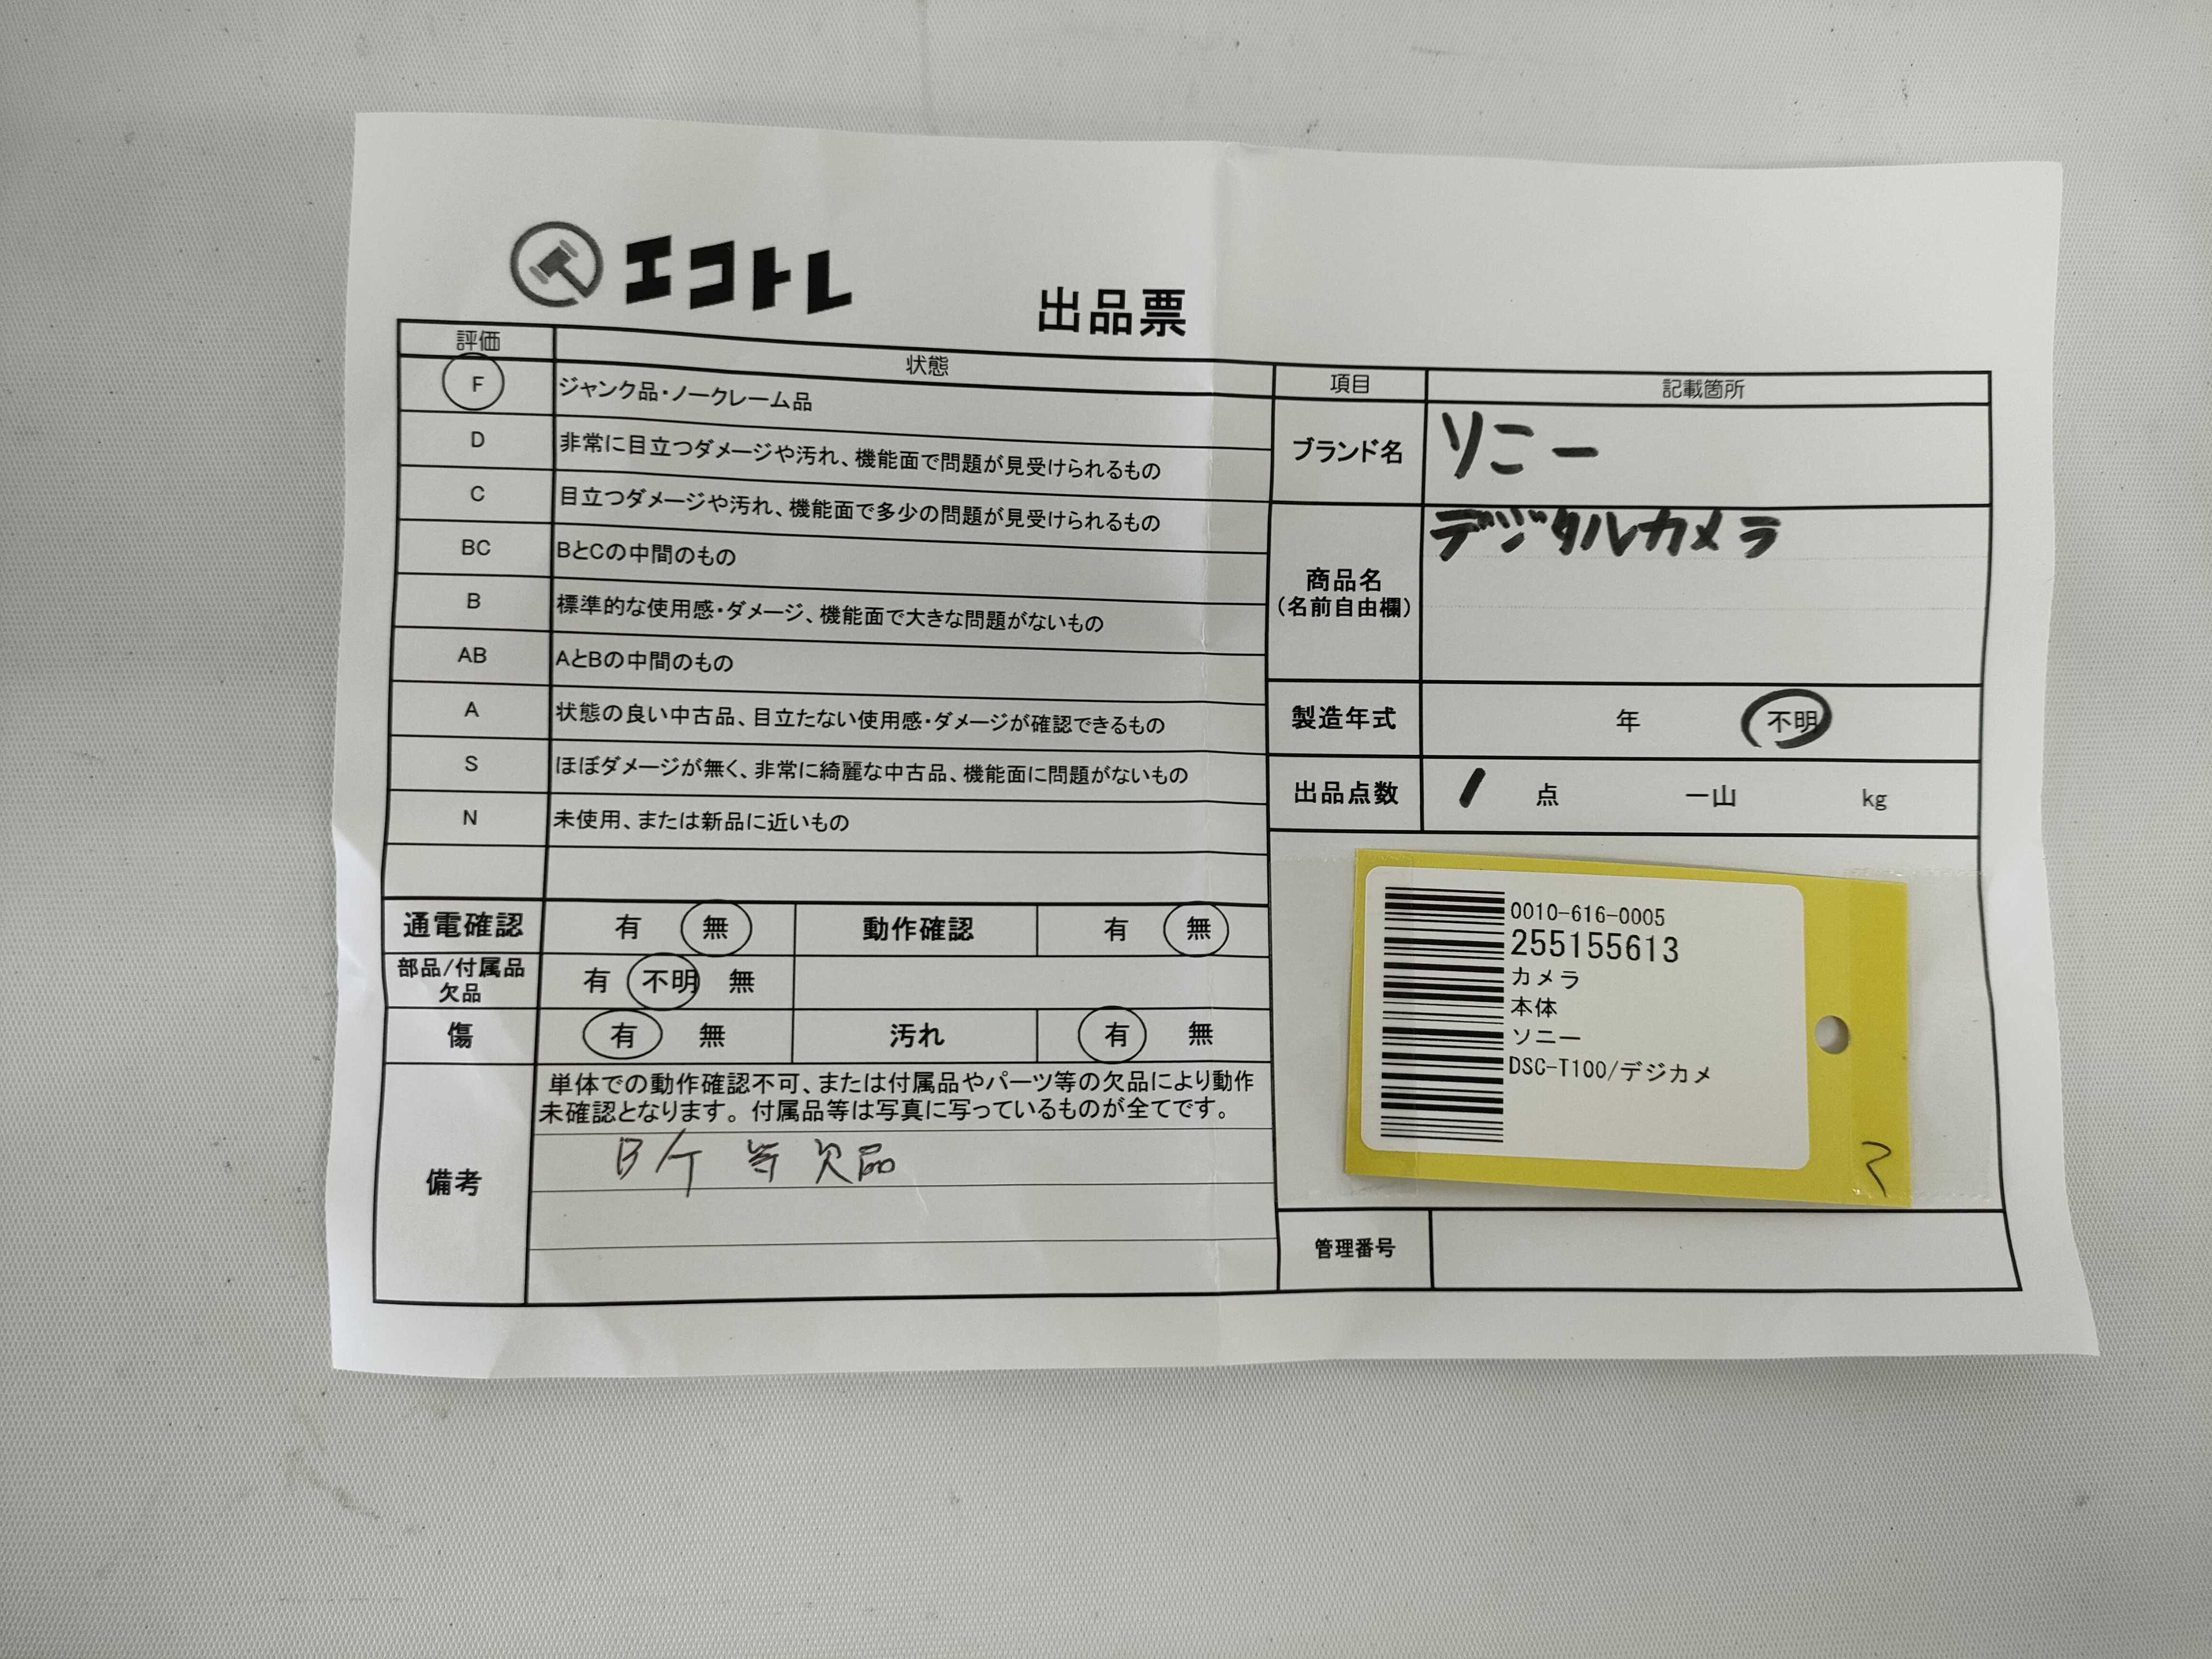 エコトレ
出品票
評価 状態
F ジャンク品・ノークレーム品
D 非常に目立つダメージや汚れ、機能面で問題が見受けられるもの
C 目立つダメージや汚れ、機能面で多少の問題が見受けられるもの
BC BとCの中間のもの
B 標準的な使用感・ダメージ、機能面で大きな問題がないもの
AB AとBの中間のもの
A 状態の良い中古品、目立たない使用感・ダメージが確認できるもの
S ほぼダメージが無く、非常に綺麗な中古品、機能面に問題がないもの
N 未使用、または新品に近いもの
通電確認 有 無 動作確認 有 無
部品/付属品
欠品 有 不明 無
傷 有 無 汚れ 有 無
備考
単体での動作確認不可、または付属品やパーツ等の欠品により動作
未確認となります。付属品等は写真に写っているものが全てです。
B/T 等 欠品
項目 記載箇所
ブランド名 ソニー
商品名
(名前自由欄)
デジタルカメラ
製造年式 年 不明
出品点数 1 点 一山 kg
0010-616-0005
255155613
カメラ
本体
ソニー
DSC-T100/デジカメ
管理番号